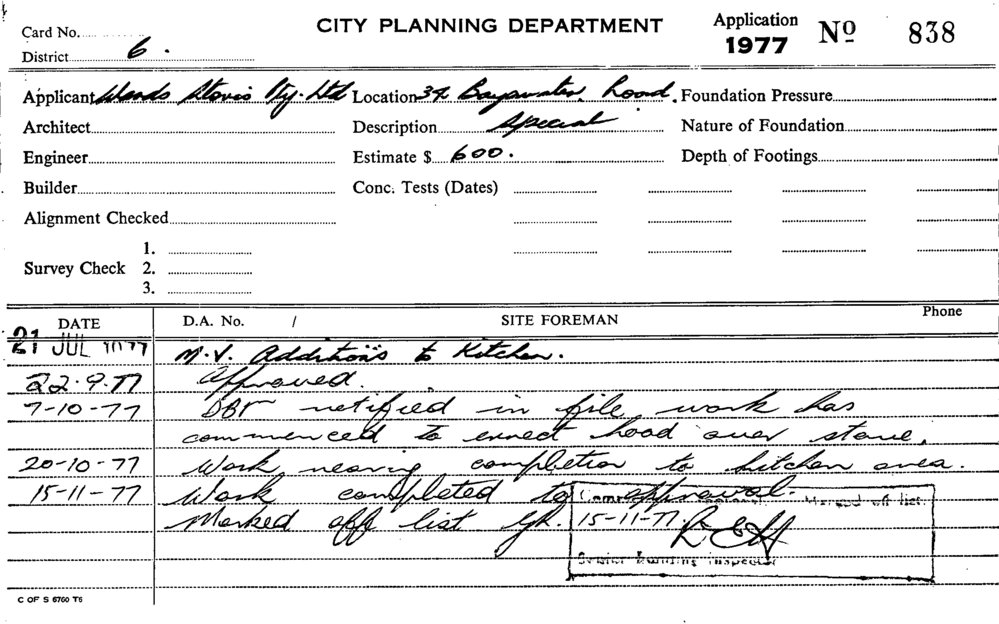 Card No.
CITY PLANNING DEPARTMENT
Application 1977 Nº 838
District 6.
Applicant Woods Stovis Pty. Ltd Location 34 Bayswater Road. Foundation Pressure
Architect Description Special Nature of Foundation
Engineer Estimate $ 600. Depth of Footings
Builder Conc. Tests (Dates)
Alignment Checked
Survey Check 1.
2.
3.
DATE D.A. No. / SITE FOREMAN Phone
21 JUL 1977 M.V. Additions to Kitchen.
22.9.77 Approved.
7-10-77 DBI notified in file work has
commenced to errect hood over stove.
20-10-77 Work nearing completion to kitchen area.
15-11-77 Work completed to approval.
Marked off list
Marked off list
15-11-77.
Senior Building Inspector
C OF S 6760 T6